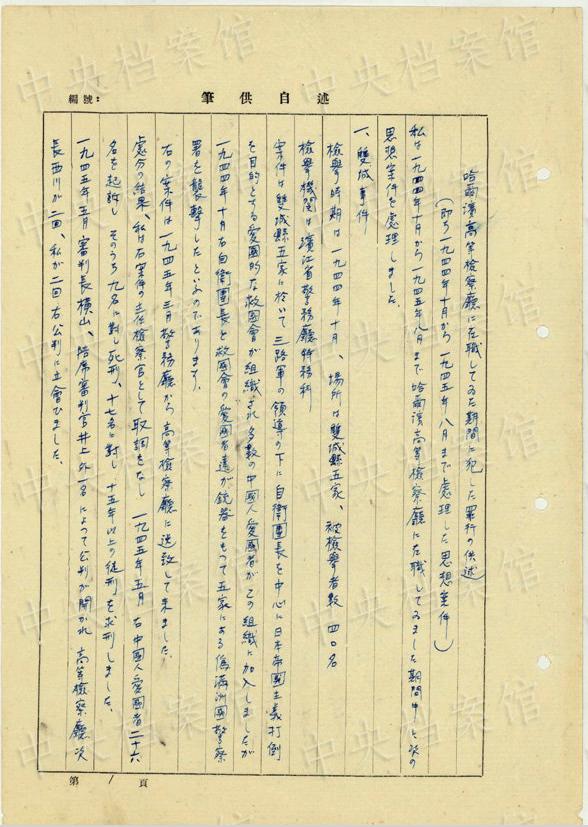 編號：
筆供自述
哈爾濱高等檢察廳に在職してゐた期間に犯した罪行の供述
（即ち一九四四年十月から一九四五年八月まで處理した思想案件）
私は一九四四年十月から一九四五年八月まで哈爾濱高等檢察廳に在職してゐました期間中に次の
思想案件を處理しました。
一、雙城事件
檢擧時期は一九四四年十月、場所は雙城縣五家、被檢擧者數 四〇名
檢擧機關は濱江省警務廳特務科
案件は雙城縣五家に於いて三路軍の領導の下に自衛團長を中心に日本帝國主義打倒
を目的とする愛國的な救國會が組織され多數の中國人愛國者がこの組織に加入しましたが
一九四四年十月右自衛團長と救國會の愛國者達が銃器をもつて五家にある偽滿洲國警察
署を襲撃したといふのであります。
右の案件は一九四五年三月警務廳から高等檢察廳に送致して来ました。
處分の結果、私は右案件の主任檢察官として取調をなし 一九四五年五月 右中國人愛國者二十六
名を起訴し そのうち九名に對し死刑、十七名に對し十五年以上の徒刑を求刑しました。
一九四五年五月 審判長横山、陪席審判官井上外一名によつて公判が開かれ 高等檢察廳次
長西川が二回、私が二回右公判に立會ひました。
第 1 頁
中央档案馆